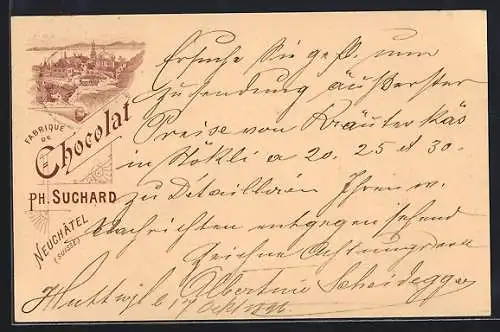 FABRIQUE
DE
Chocolat
PH. SUCHARD
NEUCHÂTEL
(SUISSE)
Ersuche Sie gefl. um
Zusendung äußerster
Preise von Kräuterkäs
in Stökli a 20. 25 et 30.
zu Detaillieren Ihren w.
Nachrichten entgegen sehend
Zeichne Achtungsvoll
Albertine Scheidegger
Huttwyl